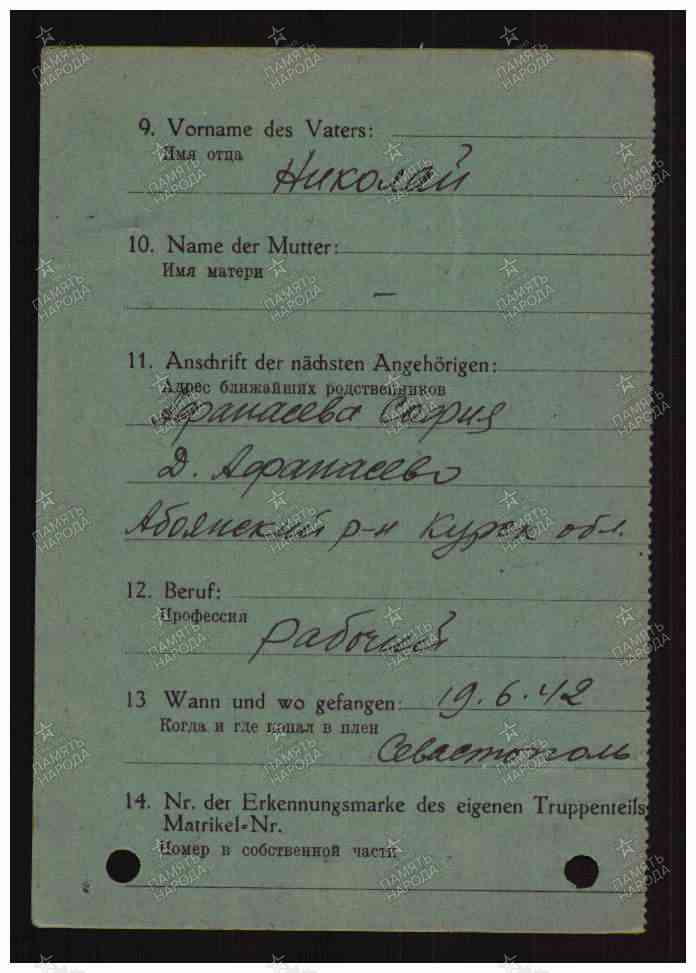 9. Vorname des Vaters:
Имя отца
Николай
10. Name der Mutter:
Имя матери
—
11. Anschrift der nächsten Angehörigen:
Адрес ближайших родственников
Афанасева София
Д. Афанасево
Абоянский р-н Курск обл.
12. Beruf:
Профессия
Рабочий
13 Wann und wo gefangen: 19.6.42
Когда и где попал в плен
Севастополь
14. Nr. der Erkennungsmarke des eigenen Truppenteils
Matrikel-Nr.
Номер в собственной части
ПАМЯТЬ НАРОДА